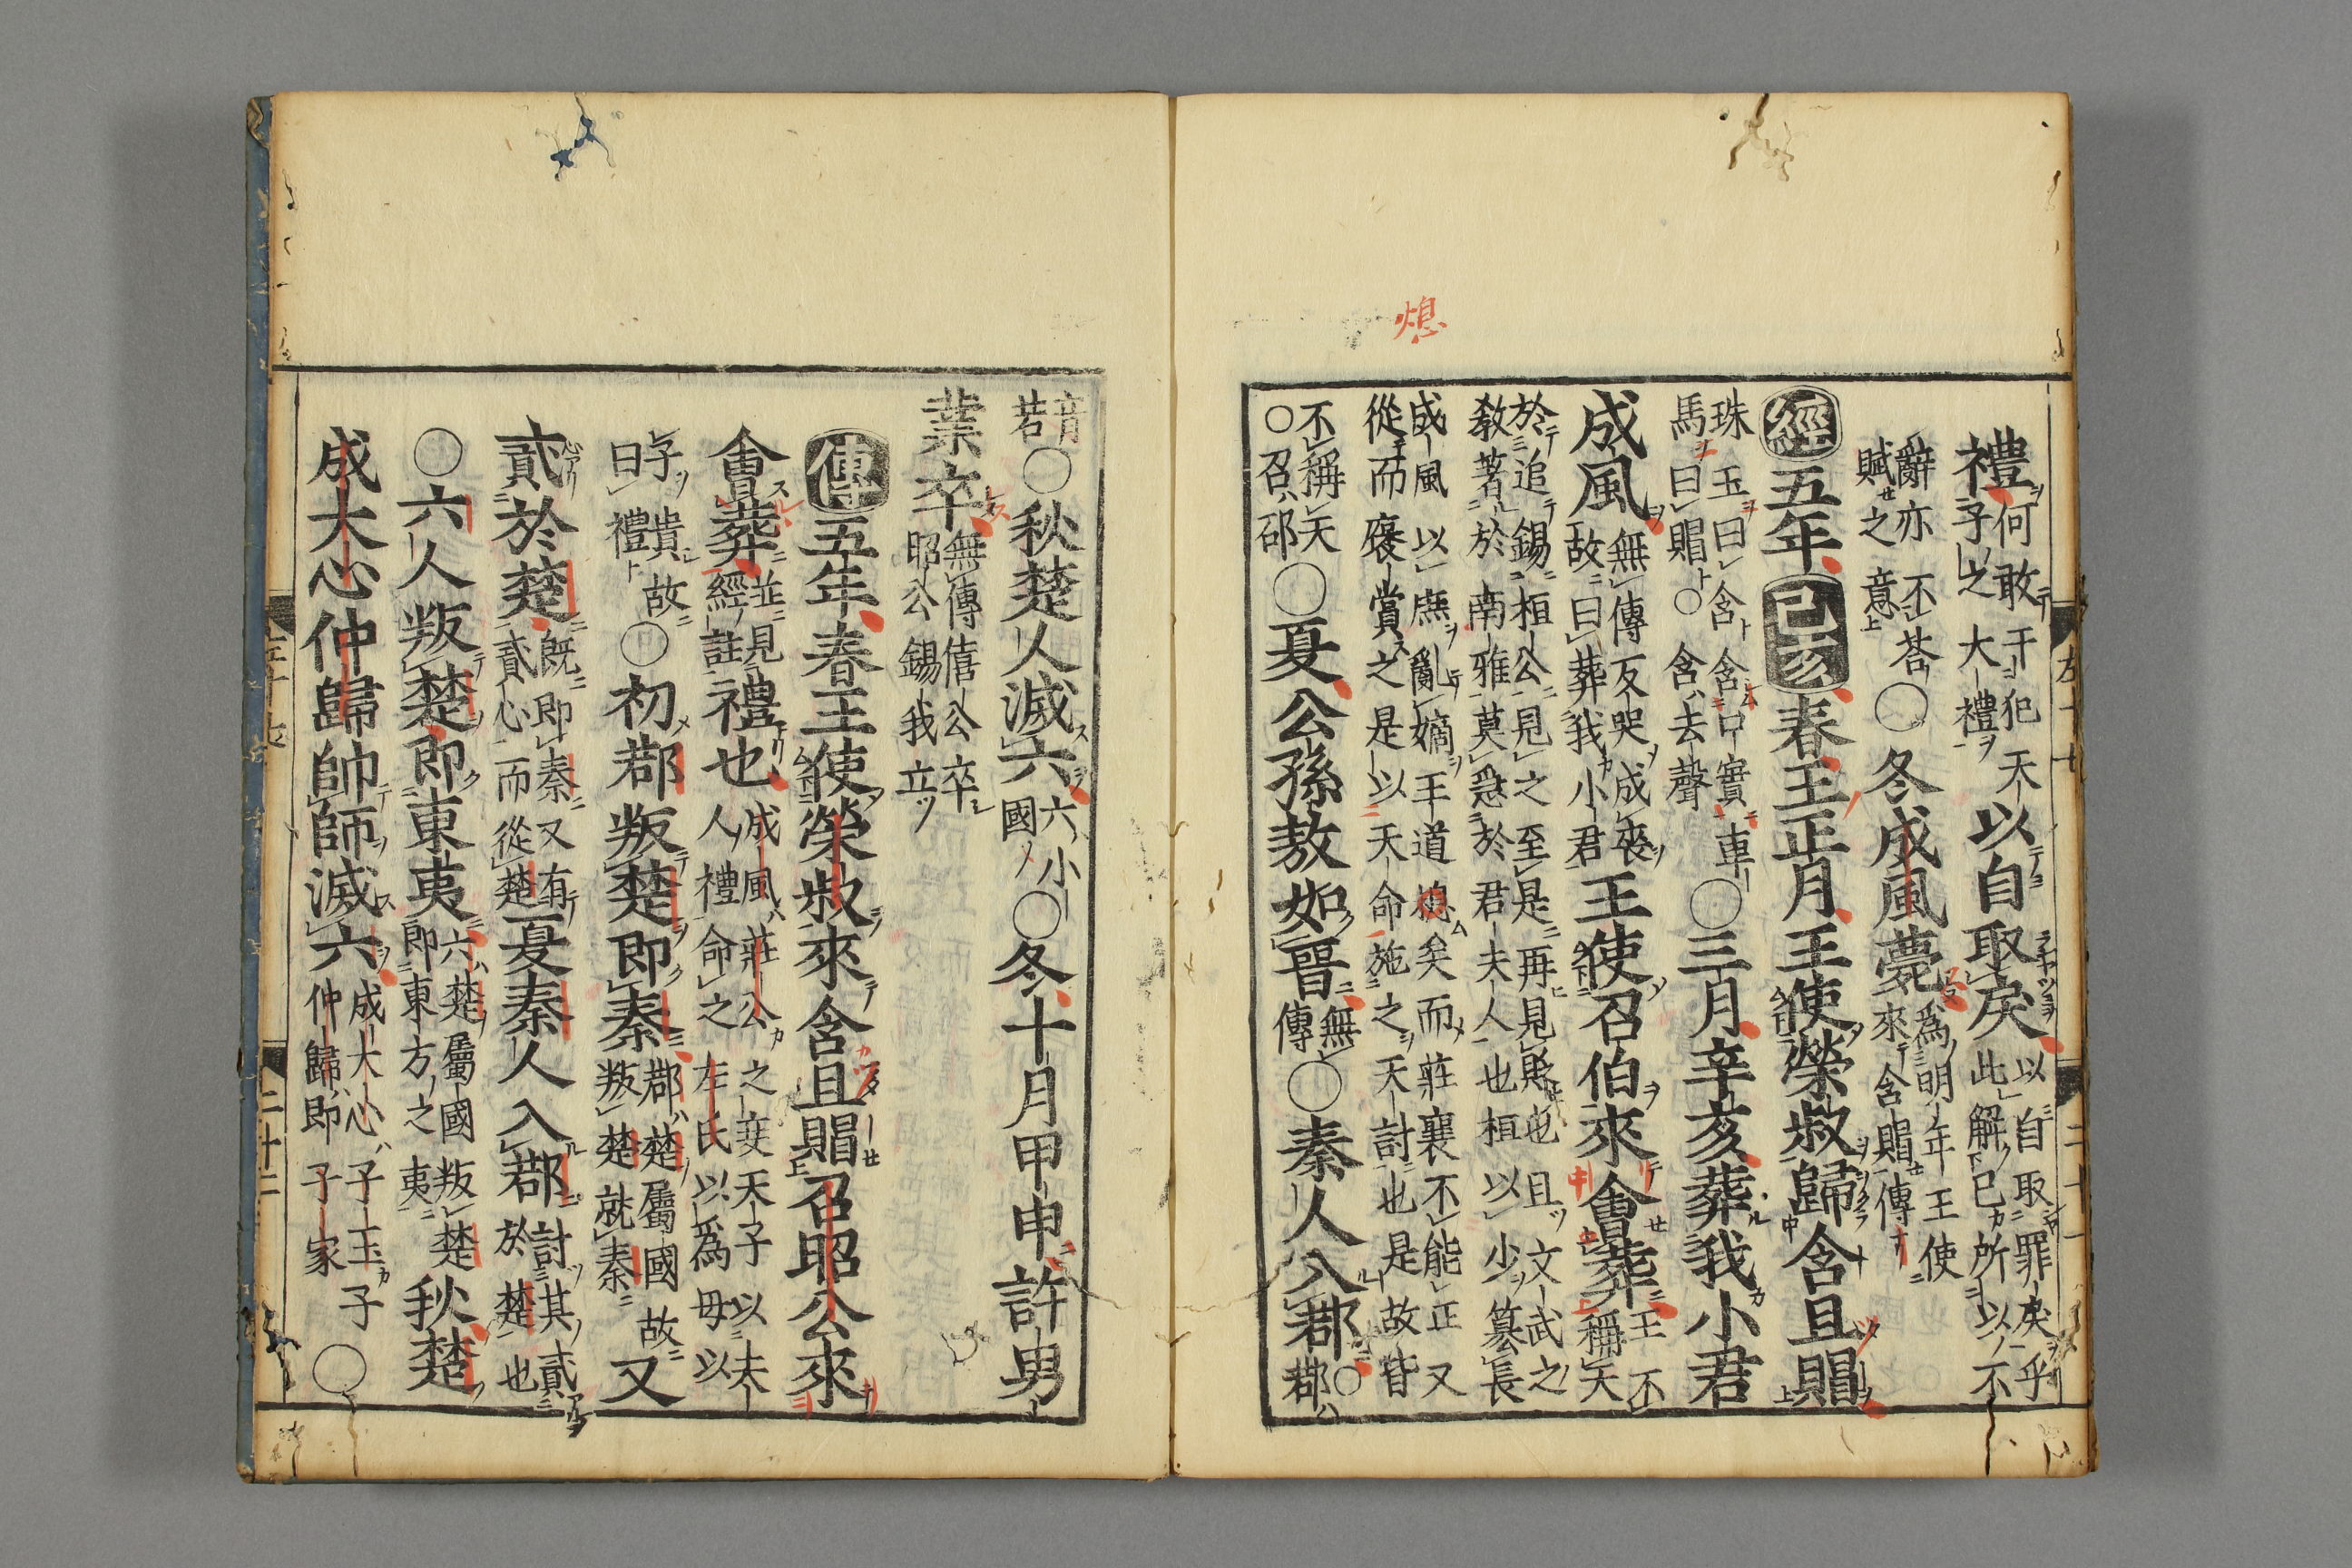 熄
禮何敢于犯天子之大禮以自取戾以自取罪戾乎此解已所以不
辭亦不荅賦之意〇冬成風薨爲明年王使來含賵傳
經五年己亥春王正月王使榮叔歸含且賵
珠玉曰含含口實車馬曰賵〇含去聲〇三月辛亥葬我小君
成風無傳反哭成喪故曰葬我小君王使召伯來會葬王不稱天
於追錫桓公見之至是再見貶也且文武之敎著於南雅莫急於君夫人也桓以少簒長
成風以庶亂嫡王道熄矣而莊襄不能正又從而褒賞之是以天命施之天討也是故皆
不稱天〇召邵〇夏公孫敖如晉無傳〇秦人入鄀〇鄀
音若〇秋楚人滅六六小國〇冬十月甲申許男
業卒無傳僖公卒昭公錫我立
傳五年春王使榮叔來含且賵召昭公來
會葬並見經註禮也成風莊公之妾天子以夫人禮命之左氏以爲母以
子貴故曰禮〇初鄀叛楚即秦鄀楚屬國故叛楚就秦又
貳於楚既即秦又有貳心而從楚夏秦人入鄀討其貳於楚也
〇六人叛楚即東夷六楚屬國叛楚即東方之夷秋楚
成大心仲歸帥師滅六成大心子玉子仲歸即子家〇